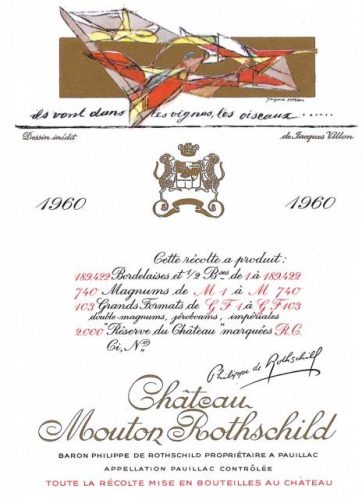 Jacques Villon
ils vont dans les vignes, les oiseaux ......
Dessin inédit de Jacques Villon
1960 1960
Cette récolte a produit:
189.422 Bordelaises et 1/2 Bses de 1 à 189.422
740 Magnums de M 1 à M 740
103 Grands Formats de G F 1 à G F 103
double-magnums, jéroboams, impériales
2.000 "Réserve du Château" marquées R.C.
Ci, No
Philippe de Rothschild
Château
Mouton Rothschild
BARON PHILIPPE DE ROTHSCHILD PROPRIÉTAIRE A PAUILLAC
APPELLATION PAUILLAC CONTRÔLÉE
TOUTE LA RÉCOLTE MISE EN BOUTEILLES AU CHÂTEAU